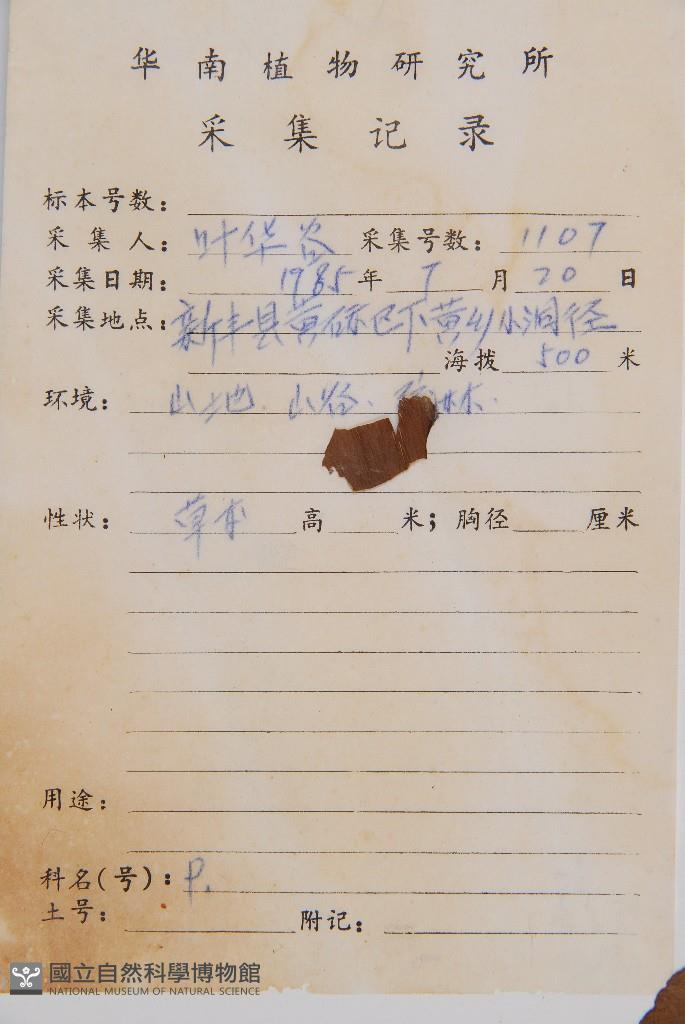 华南植物研究所
采集记录
标本号数：
采集人：叶华谷 采集号数：1107
采集日期：1985年 7月20日
采集地点：新丰县黄磜区下黄乡小洞径
海拨 500 米
环境：山地．山谷． 林．
性状：草本 高 米；胸径 厘米
用途：
科名(号)：P.
土号： 附记：
國立自然科學博物館
NATIONAL MUSEUM OF NATURAL SCIENCE